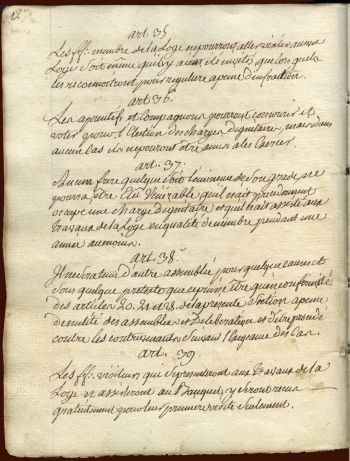 12.
art 35
Les ff∴ membre de la Loge ne pourront aller visiter aucune
Loge soit même quelle y a été
les reconnoitront pour reguliere a peine d'infraction.
art 36.
Les aprentifs et Compagnons pourront concourir et
voter pour l'Election des charges Dignitaire, mais dans
aucun cas ils ne pourront être admis a les Exercer.
art. 37.
Aucun frere quelque soit l'éminence de son grade, ne
pourra être Elû Vénérable qu'il n'ait précédemment
occupé une charge Dignitaire et qu'il n'ait assisté aux
travaux de la Loge en qualité de membre pendant une
année au moins.
art. 38.
Il ne sera tenu d'autre assemblée pour quelque cause et
sous quelque pretexte que ce puisse être qu'en conformité
des articles 20. 21 et 28 de la presente section a peine
de nullité des assemblées et Deliberation et d'etre procedé
contre les contrevenants suivant l'exigeance des Cas.
art. 39
Les ff∴ visiteurs qui se presenteront aux travaux de la
Loge et assisteront au Banquet, y seront reçus
gratuitement pour leur premiere visite seulement.